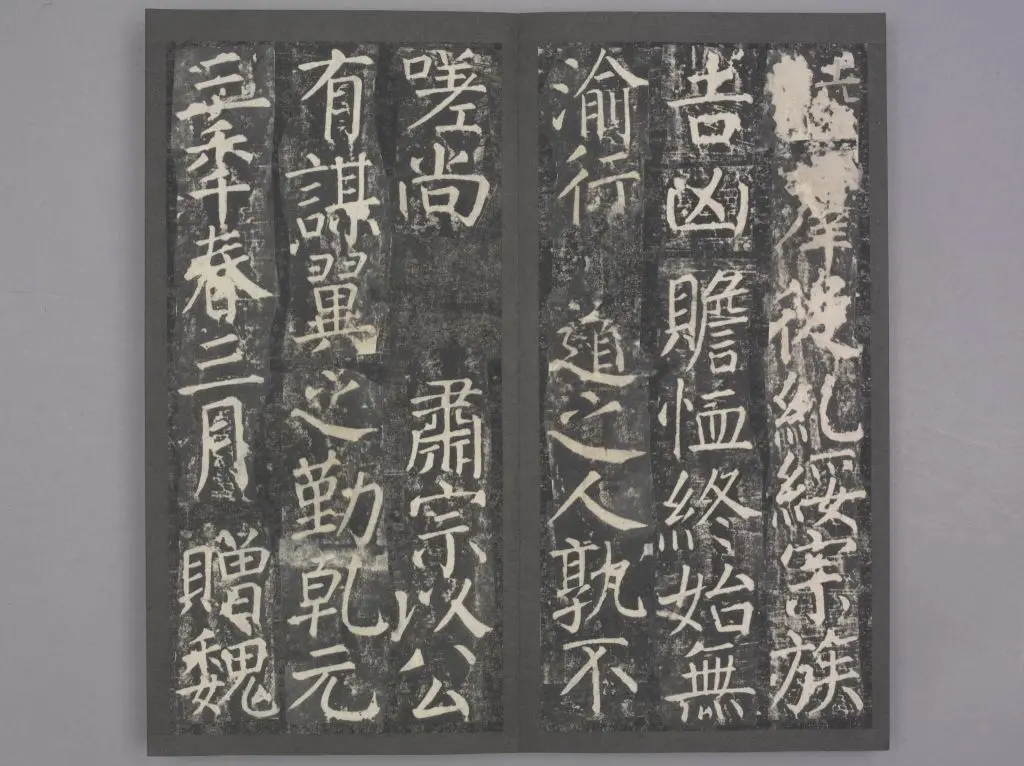 從糺綏宗族
吉凶贍恤終始無
渝行道之人孰不
嗟尚 肅宗以公
有謀翼之勤乾元
三年春三月 贈魏